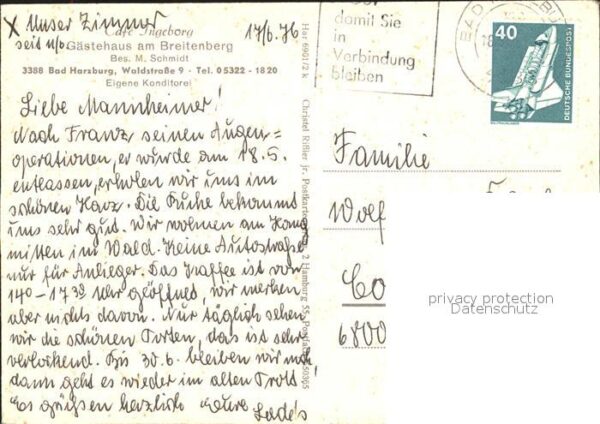 x Unser Zimmer
17/6.76
Café Ingeborg
seit
Gästehaus am Breitenberg
Bes. M. Schmidt
3388 Bad Harzburg, Waldstraße 9 · Tel. 05322 - 1820
Eigene Konditorei
Liebe Mannheimer!
Nach Franz seinen Augen=
operationen, er wurde am 18.5.
entlassen, erholen wir uns im
schönen Harz. Die Ruhe bekommt
uns sehr gut. Wir wohnen am Hang
mitten im Wald. Keine Autostraße
nur für Anlieger. Das Kaffee ist von
14⁰⁰ - 17³⁰ Uhr geöffnet, wir merken
aber nichts davon. Nur täglich sehen
wir die schönen Torten, das ist sehr
verlockend. Bis 30.6. bleiben wir
dann geht es wieder im alten Trott
Es grüßen herzlich Eure
Har 6901/2 k
Christel Riffler jr.
2 Hamburg 55
damit Sie
in
Verbindung
bleiben
BAD
40
DEUTSCHE BUNDESPOST
Familie
Wolf
Co
6800
privacy protection
Datenschutz